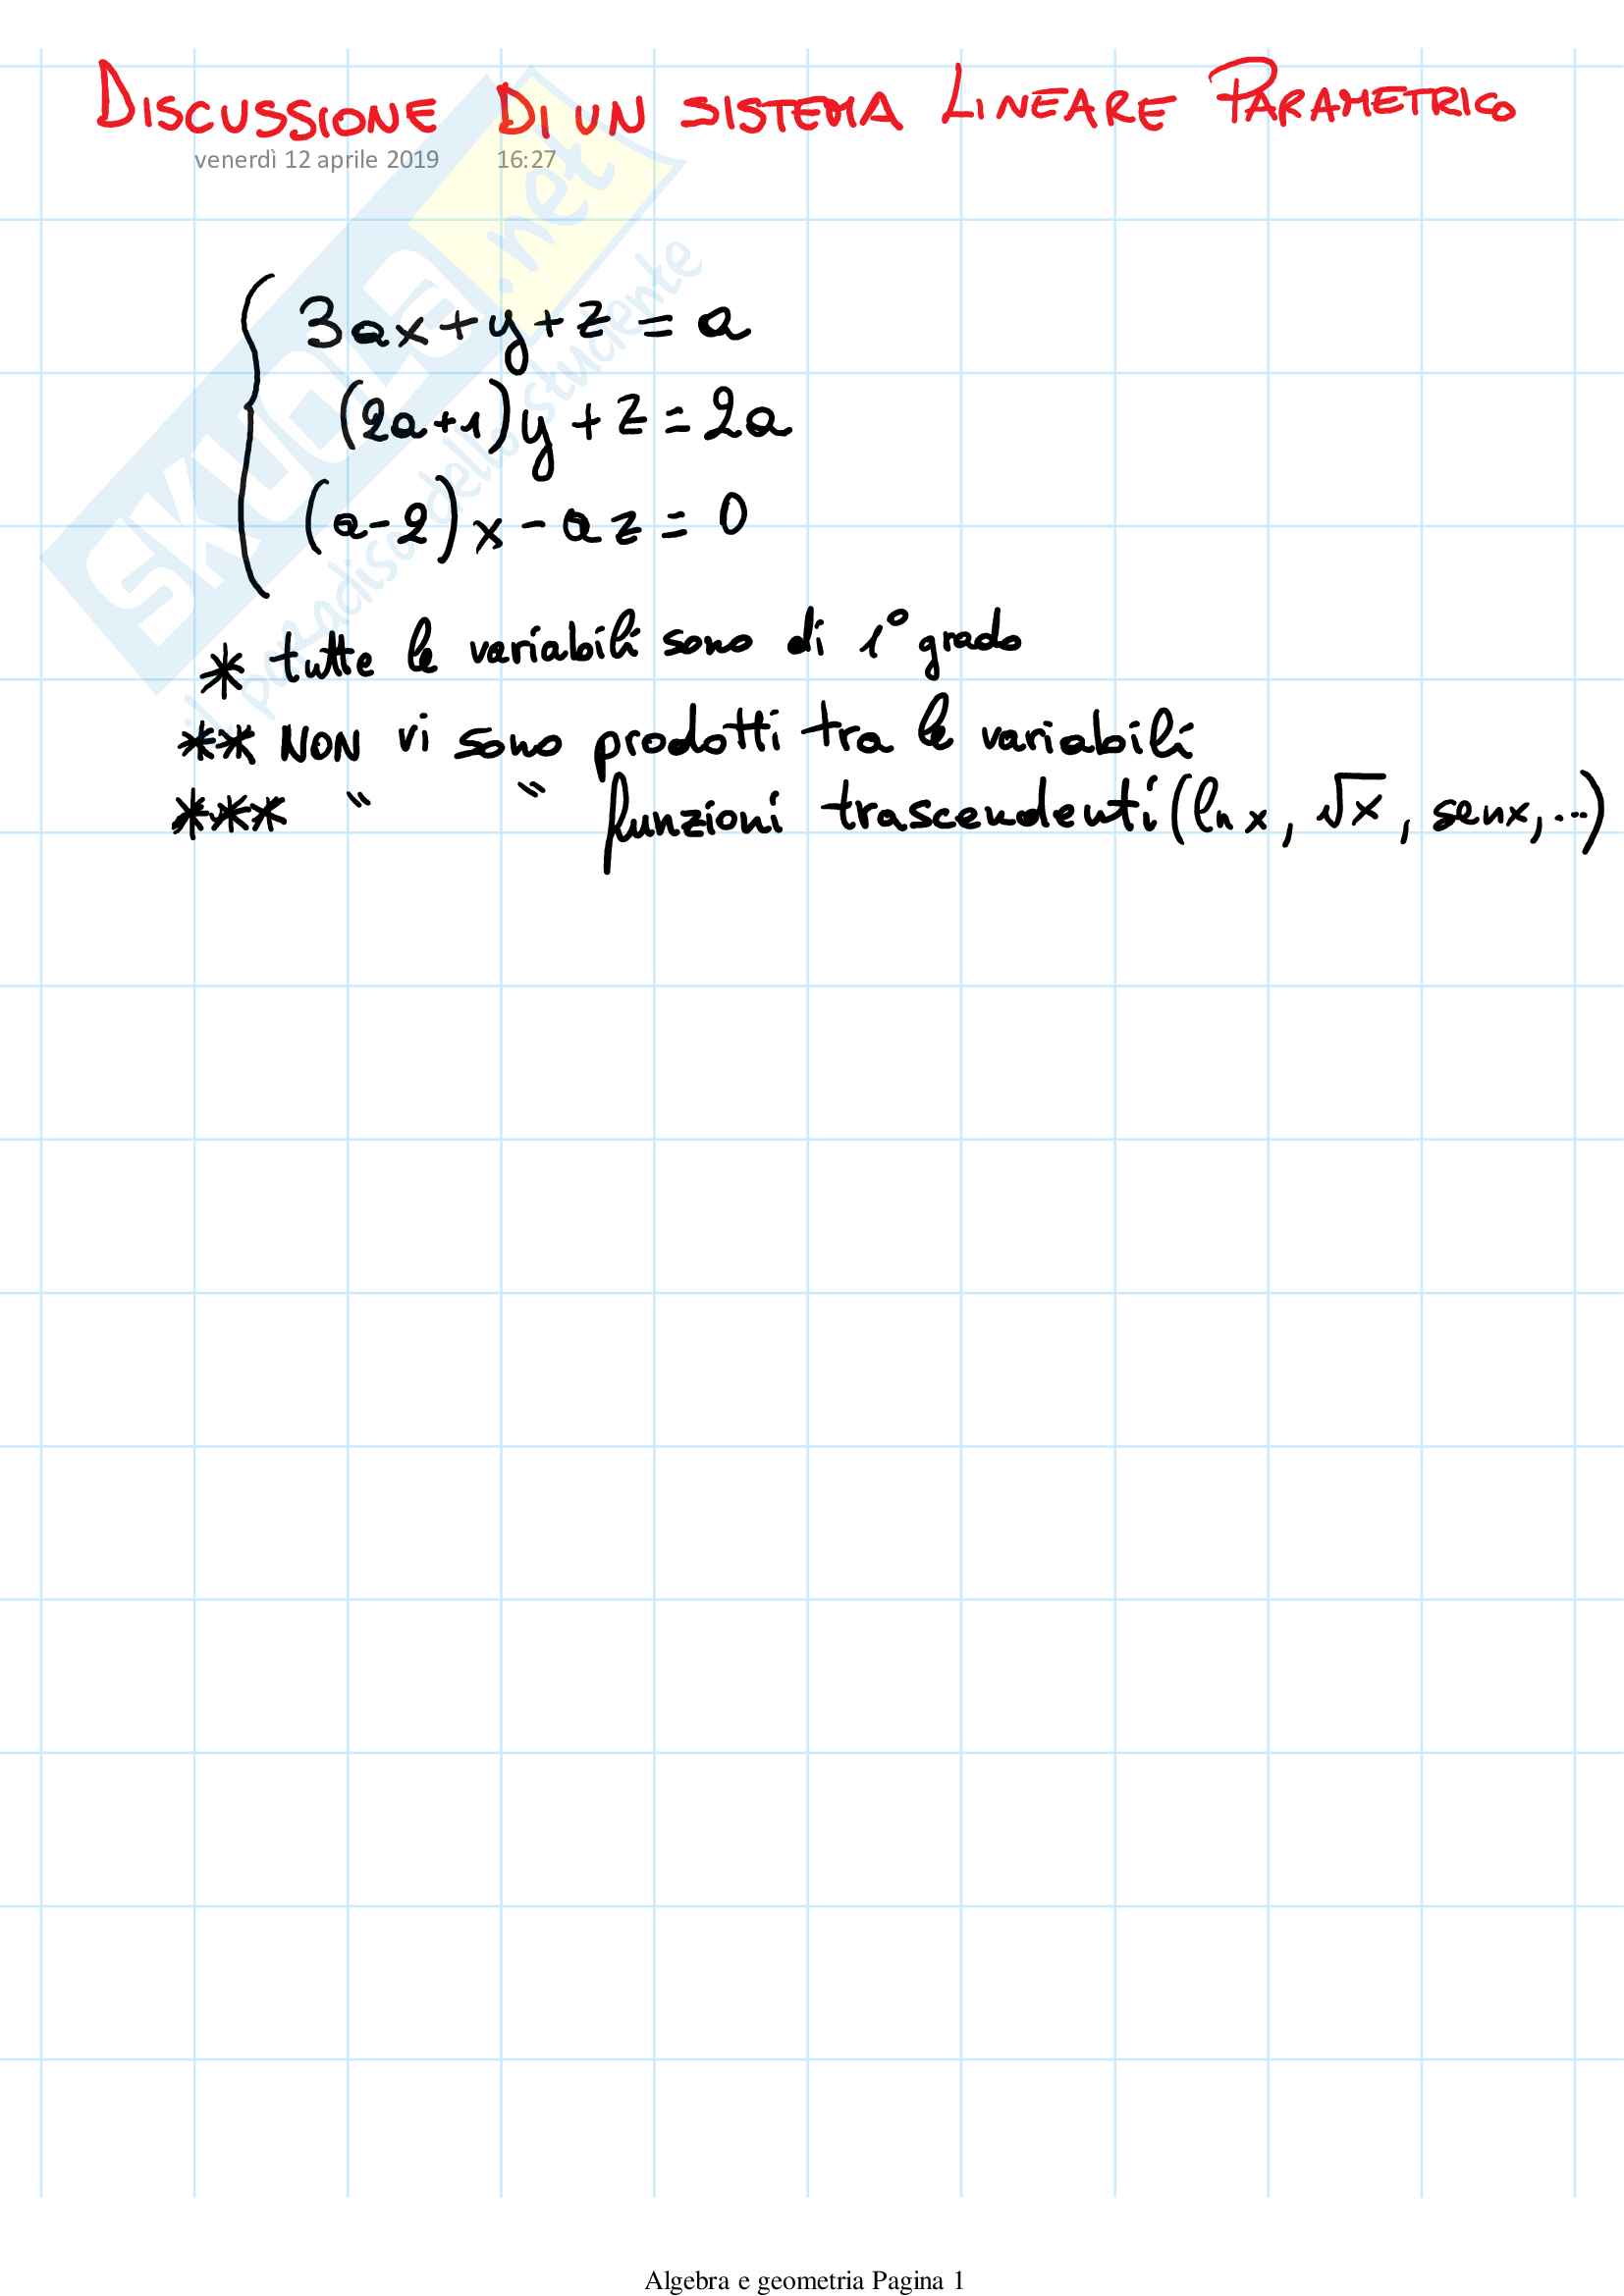 DISCUSSIONE DI UN SISTEMA LINEARE PARAMETRICO
venerdì 12 aprile 2019 16:27
3ax+y+z=a
(2a+1)y+z=2a
(a-2)x-az=0
* tutte le variabili sono di 1° grado
** NON vi sono prodotti tra le variabili
*** " " funzioni trascendenti (ln x, √x, senx,...)
SKUOLA.net
il paradiso dello studente
Algebra e geometria Pagina 1